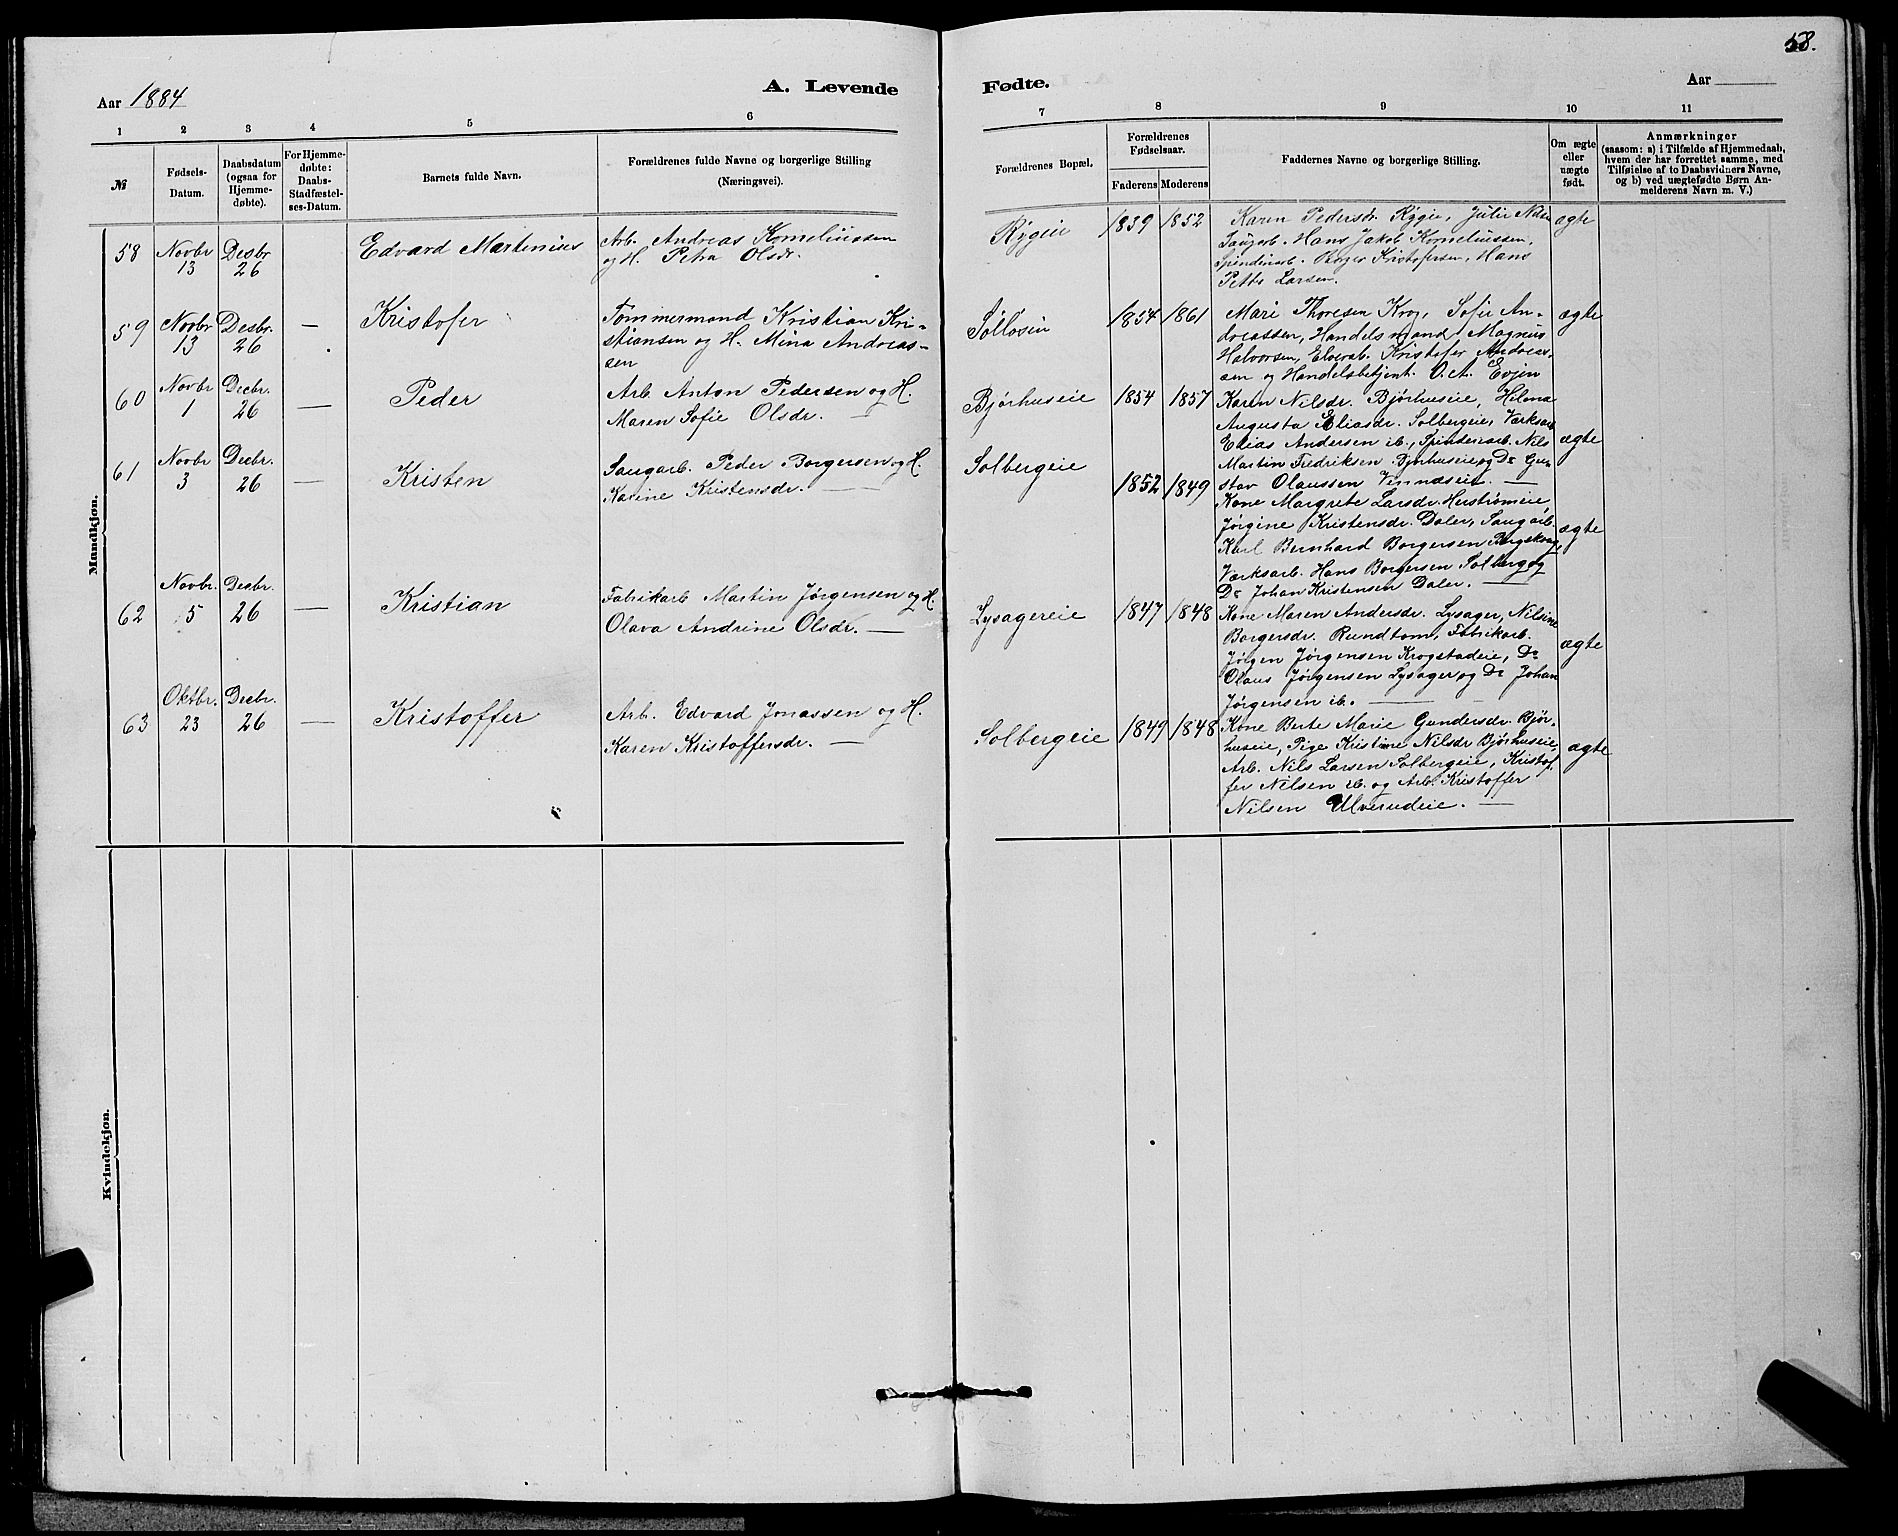 Aar 1884
A. Levende
1 2 3 4 5 6
№
Fødsels-
Datum.
Daabsdatum
(ogsaa for
Hjemme-
døbte).
For Hjemme-
døbte:
Daabs-
Stadfæstel-
ses-Datum.
Barnets fulde Navn.
Forældrenes fulde Navne og borgerlige Stilling
(Næringsvei).
Mandkjøn.
58 Novbr 13 Desbr 26 Edvard Martinius
Arb. Andreas Korneliussen
og H. Petra Olsdr.
59 Novbr 13 Desbr. 26 — Kristofer
Tømmermand Kristian Kri-
stiansen og H. Mina Andreas-
sen
60 Novbr 1 Decbr. 26 — Peder
Arb. Anton Pedersen og H.
Maren Sofie Olsdr. —
61 Novbr 3 Decbr. 26 — Kristen
Saugarb. Peder Borgersen og H.
Karine Kristensdr. —
62 Novbr. 5 Decbr. 26 — Kristian
Fabrikarb Martin Jørgensen og H.
Olava Andrine Olsdr. —
63 Oktbr. 23 Decbr. 26 — Kristoffer
Arb. Edvard Jonassen og H.
Karen Kristoffersdr. —
Kvindekjøn.
58.
Fødte.
Aar
7 8 9 10 11
Forældrenes Bopæl.
Forældrenes
Fødselsaar.
Faderens Moderens
Faddernes Navne og borgerlige Stilling.
Om ægte
eller
uægte
født.
Anmærkninger
(saasom: a) i Tilfælde af Hjemmedaab,
hvem der har forrettet samme, med
Tilføielse af to Daabsvidners Navne,
og b) ved uægtefødte Børn An-
melderens Navn m. V.)
Rygeie 1839 1852 ægte
Karen Pedersdr Rygeie, Julie
Saugarb. Hans Jakob Korneliussen,
Spinderiarb. Kristofersen, Hans
Petter Larsen.
1854 1861 ægte
Mari Thoresen Krog, Sofie An-
dreassen, Handelsmand Magnus
Halvorsen, Elverab. Kristofer Andreas-
sen og Handelsbetjent O. A. Evjen
Bjørhuseie 1854 1857 ægte
Karen Nilsdr. Bjørhuseie, Helena
Augusta Eliasdr. Solbergeie, Værksarb
Elias Andersen ib., Spinderiarb. Nils
Martin Fredriksen Bjørhuseie og Do Gu-
stav Olaussen —
Solbergeie 1852 1849 ægte
Kone Margrete Larsdr. Herstrømeie,
Jørgine Kristensdr. Daler, Saugarb.
Karl Bernhard Borgersen Bergskog,
Værksarb. Hans Borgersen Solberg og
Do Johan Kristensen Daler. —
Lysagereie 1847 1848 ægte
Kone Maren Andersdr. Lysager, Nilsine
Borgersdr. Rundtom, Fabrikarb.
Jørgen Jørgensen Krogstadeie, Do
Olaus Jørgensen Lysager, og Do Johan
Jørgensen ib. —
Solbergeie 1849 1848 ægte
Kone Berte Marie Gundersdr. Bjør-
huseie, Pige Kristine Nilsdr Bjørhuseie,
Arb. Nils Larsen Solbergeie, Kristof-
fer Nilsen ib. og Arb. Kristoffer
Nilsen Ulverudeie. —